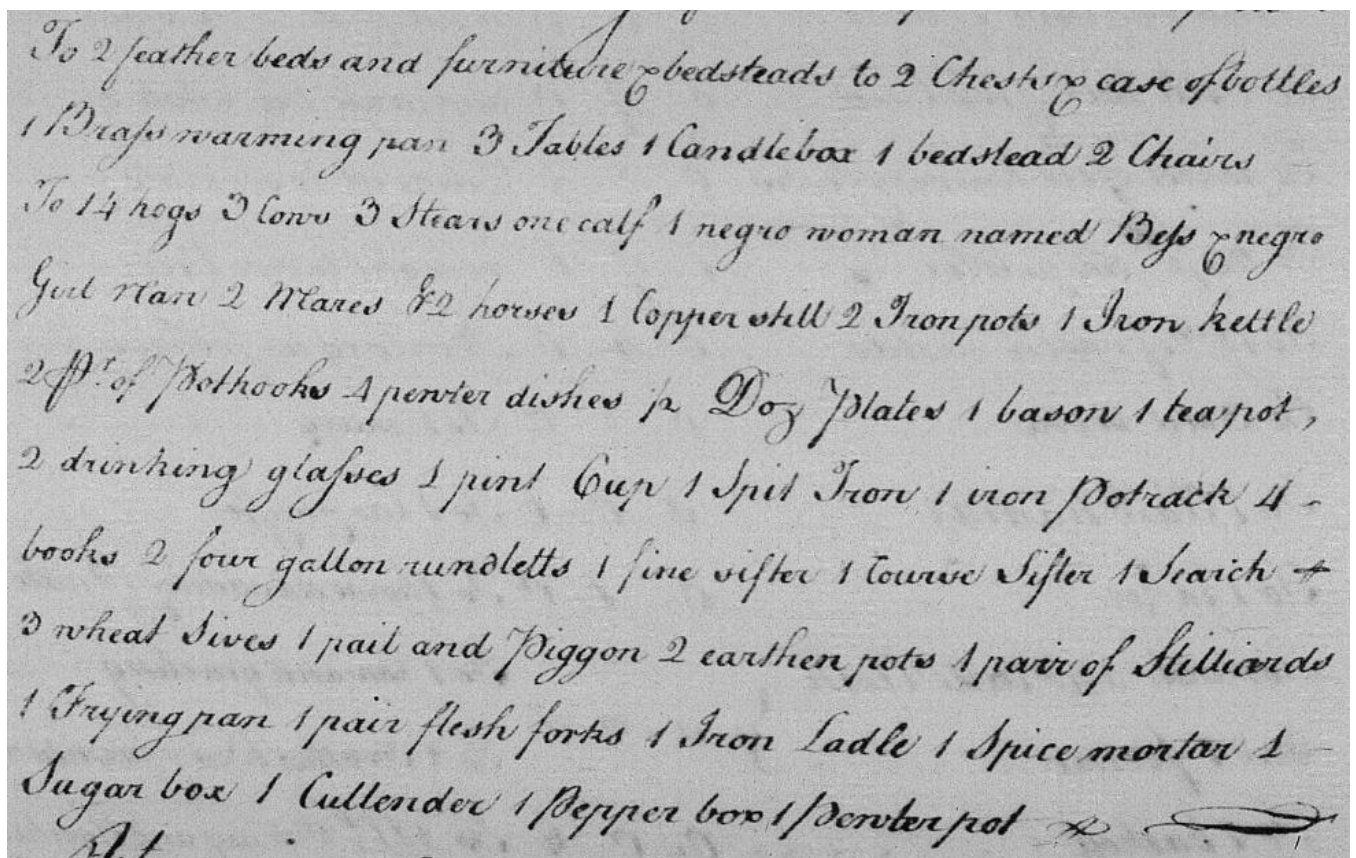 To 2 feather beds and furniture & bedsteads to 2 Chests & case of bottles
1 Brass warming pan 3 Tables 1 Candlebox 1 bedstead 2 Chairs
To 14 hogs 3 Cows 3 Stears one calf 1 negro woman named Bess & negro
Girl Nan 2 Mares & 2 horses 1 Copper still 2 Iron pots 1 Iron kettle
2 Pr. of Pothooks 4 pewter dishes ½ Doz Plates 1 bason 1 tea pot,
2 drinking glasses 1 pint Cup 1 Spit Iron 1 iron Potrack 4
books 2 four gallon rundletts 1 fine sifter 1 Course Sifter 1 Search &
3 wheat Sives 1 pail and Piggon 2 earthen pots 1 pair of Stilliards
1 Frying pan 1 pair flesh forks 1 Iron Ladle 1 Spice mortar 1
Sugar box 1 Cullender 1 Pepper box 1 Pewter pot